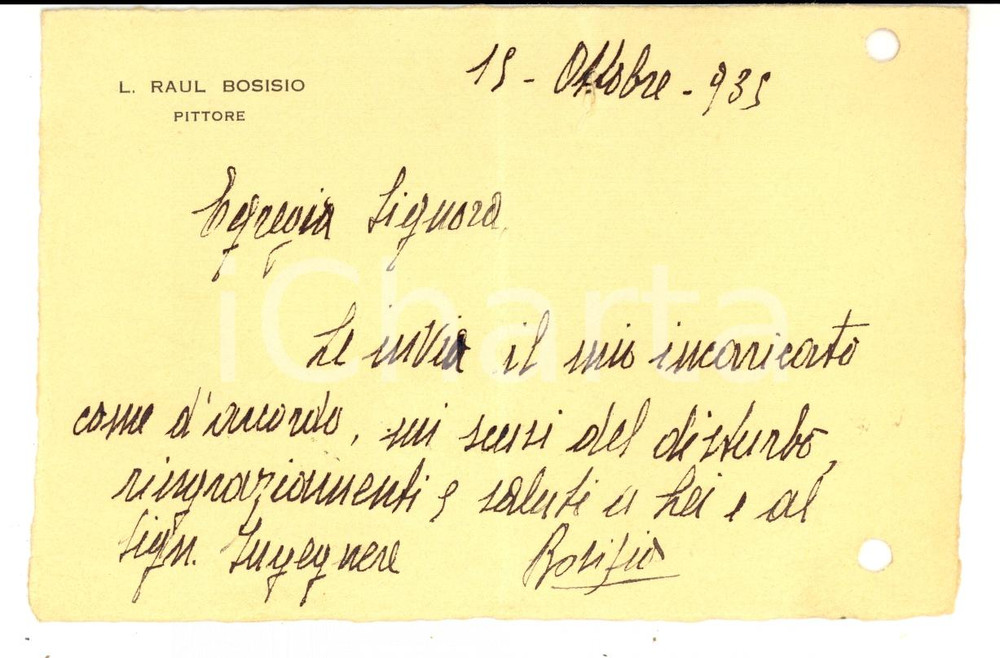 L. RAUL BOSISIO
PITTORE
15 - Ottobre - 935
Egregia Signora.
iCharta
Le invio il mio incaricato
come d'accordo, mi scusi del disturbo,
ringraziamenti e saluti a Lei e al
Sign. Ingegnere
Bosisio